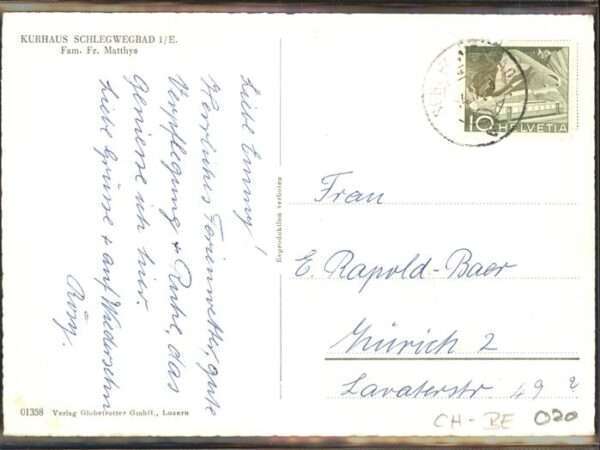 KURHAUS SCHLEGWEGBAD i/E.
Fam. Fr. Matthys
Liebe Emmy!
Herrliches Ferienwetter, gute
Verpflegung + Ruhe, das
Geniesse ich hier.
Liebe Grüsse + auf Wiedersehn
Rösy.
Reproduktion verboten
10 HELVETIA
Frau
E. Rapold-Baer
Zürich 2
Lavaterstr. 49
CH-BE 020
01358 Verlag Globetrotter GmbH., Luzern